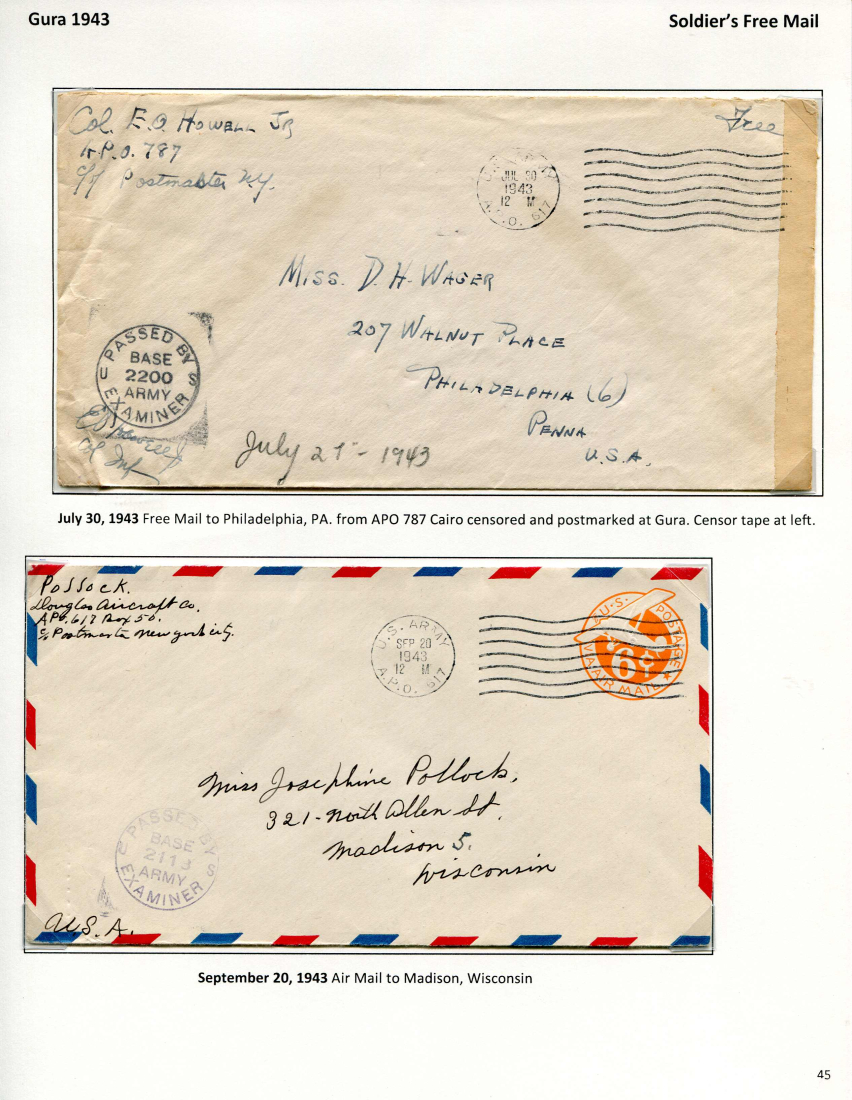 Gura 1943
Soldier's Free Mail
Col. E.O. Howell Jr
A.P.O. 787
c/o Postmaster N.Y.
Free
U.S. ARMY
JUL 30
1943
12 M
A.P.O. 617
Miss. D. H. Wager
207 Walnut Place
Philadelphia (6)
Penna
U.S.A.
PASSED BY
BASE
2200
ARMY
EXAMINER
U S
EO Howell Jr
Col Inf
July 27 - 1943
July 30, 1943 Free Mail to Philadelphia, PA. from APO 787 Cairo censored and postmarked at Gura. Censor tape at left.
Pollock.
Douglas Aircraft Co.
APO. 617 Box 50.
c/o Postmaster New York City.
U.S. ARMY
SEP 20
1943
12 M
A.P.O. 617
U.S. POSTAGE
6¢
VIA AIR MAIL
Miss Josephine Pollock,
321-North Allen St.
Madison 5.
Wisconsin
PASSED BY
BASE
2113
ARMY
EXAMINER
U S
U.S.A.
September 20, 1943 Air Mail to Madison, Wisconsin
45